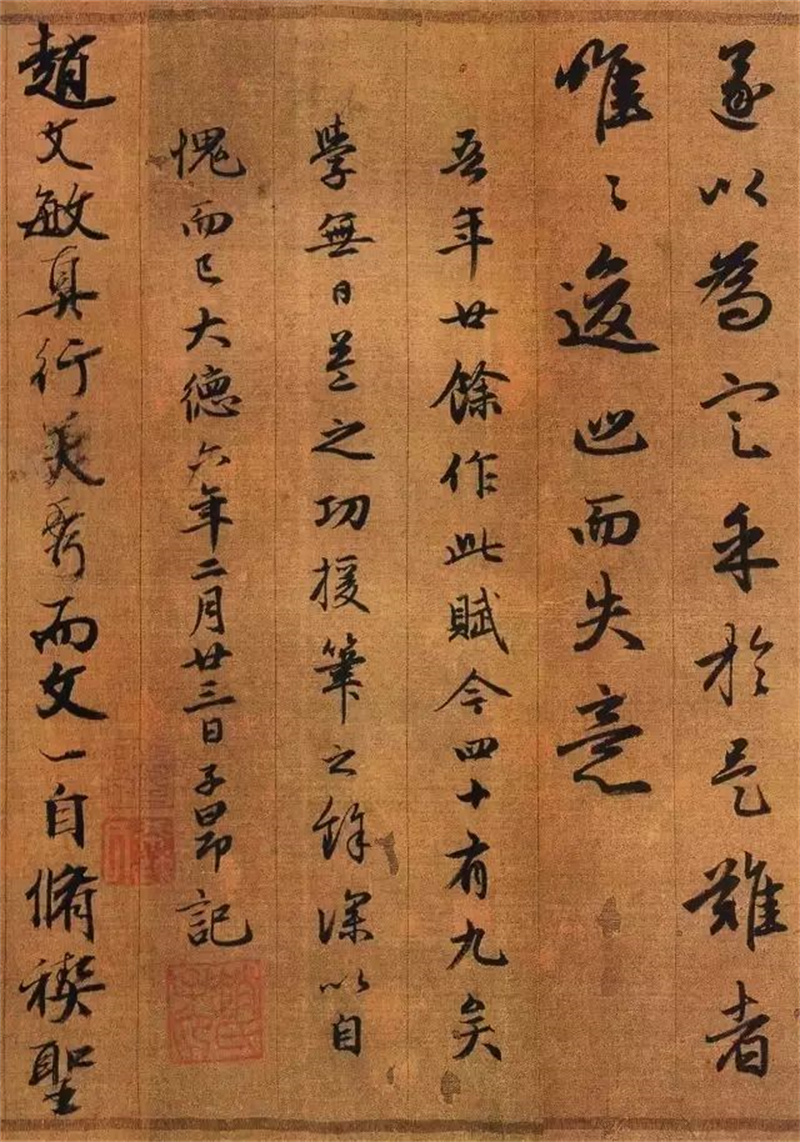 遂以為定乎於是難者
惟〻逡巡而失意
吾年廿餘作此賦今四十有九矣
學無日益之功援筆之餘深以自
愧而已大德六年二月廿三日子昂記
趙文敏真行美秀而文一自脩禊聖